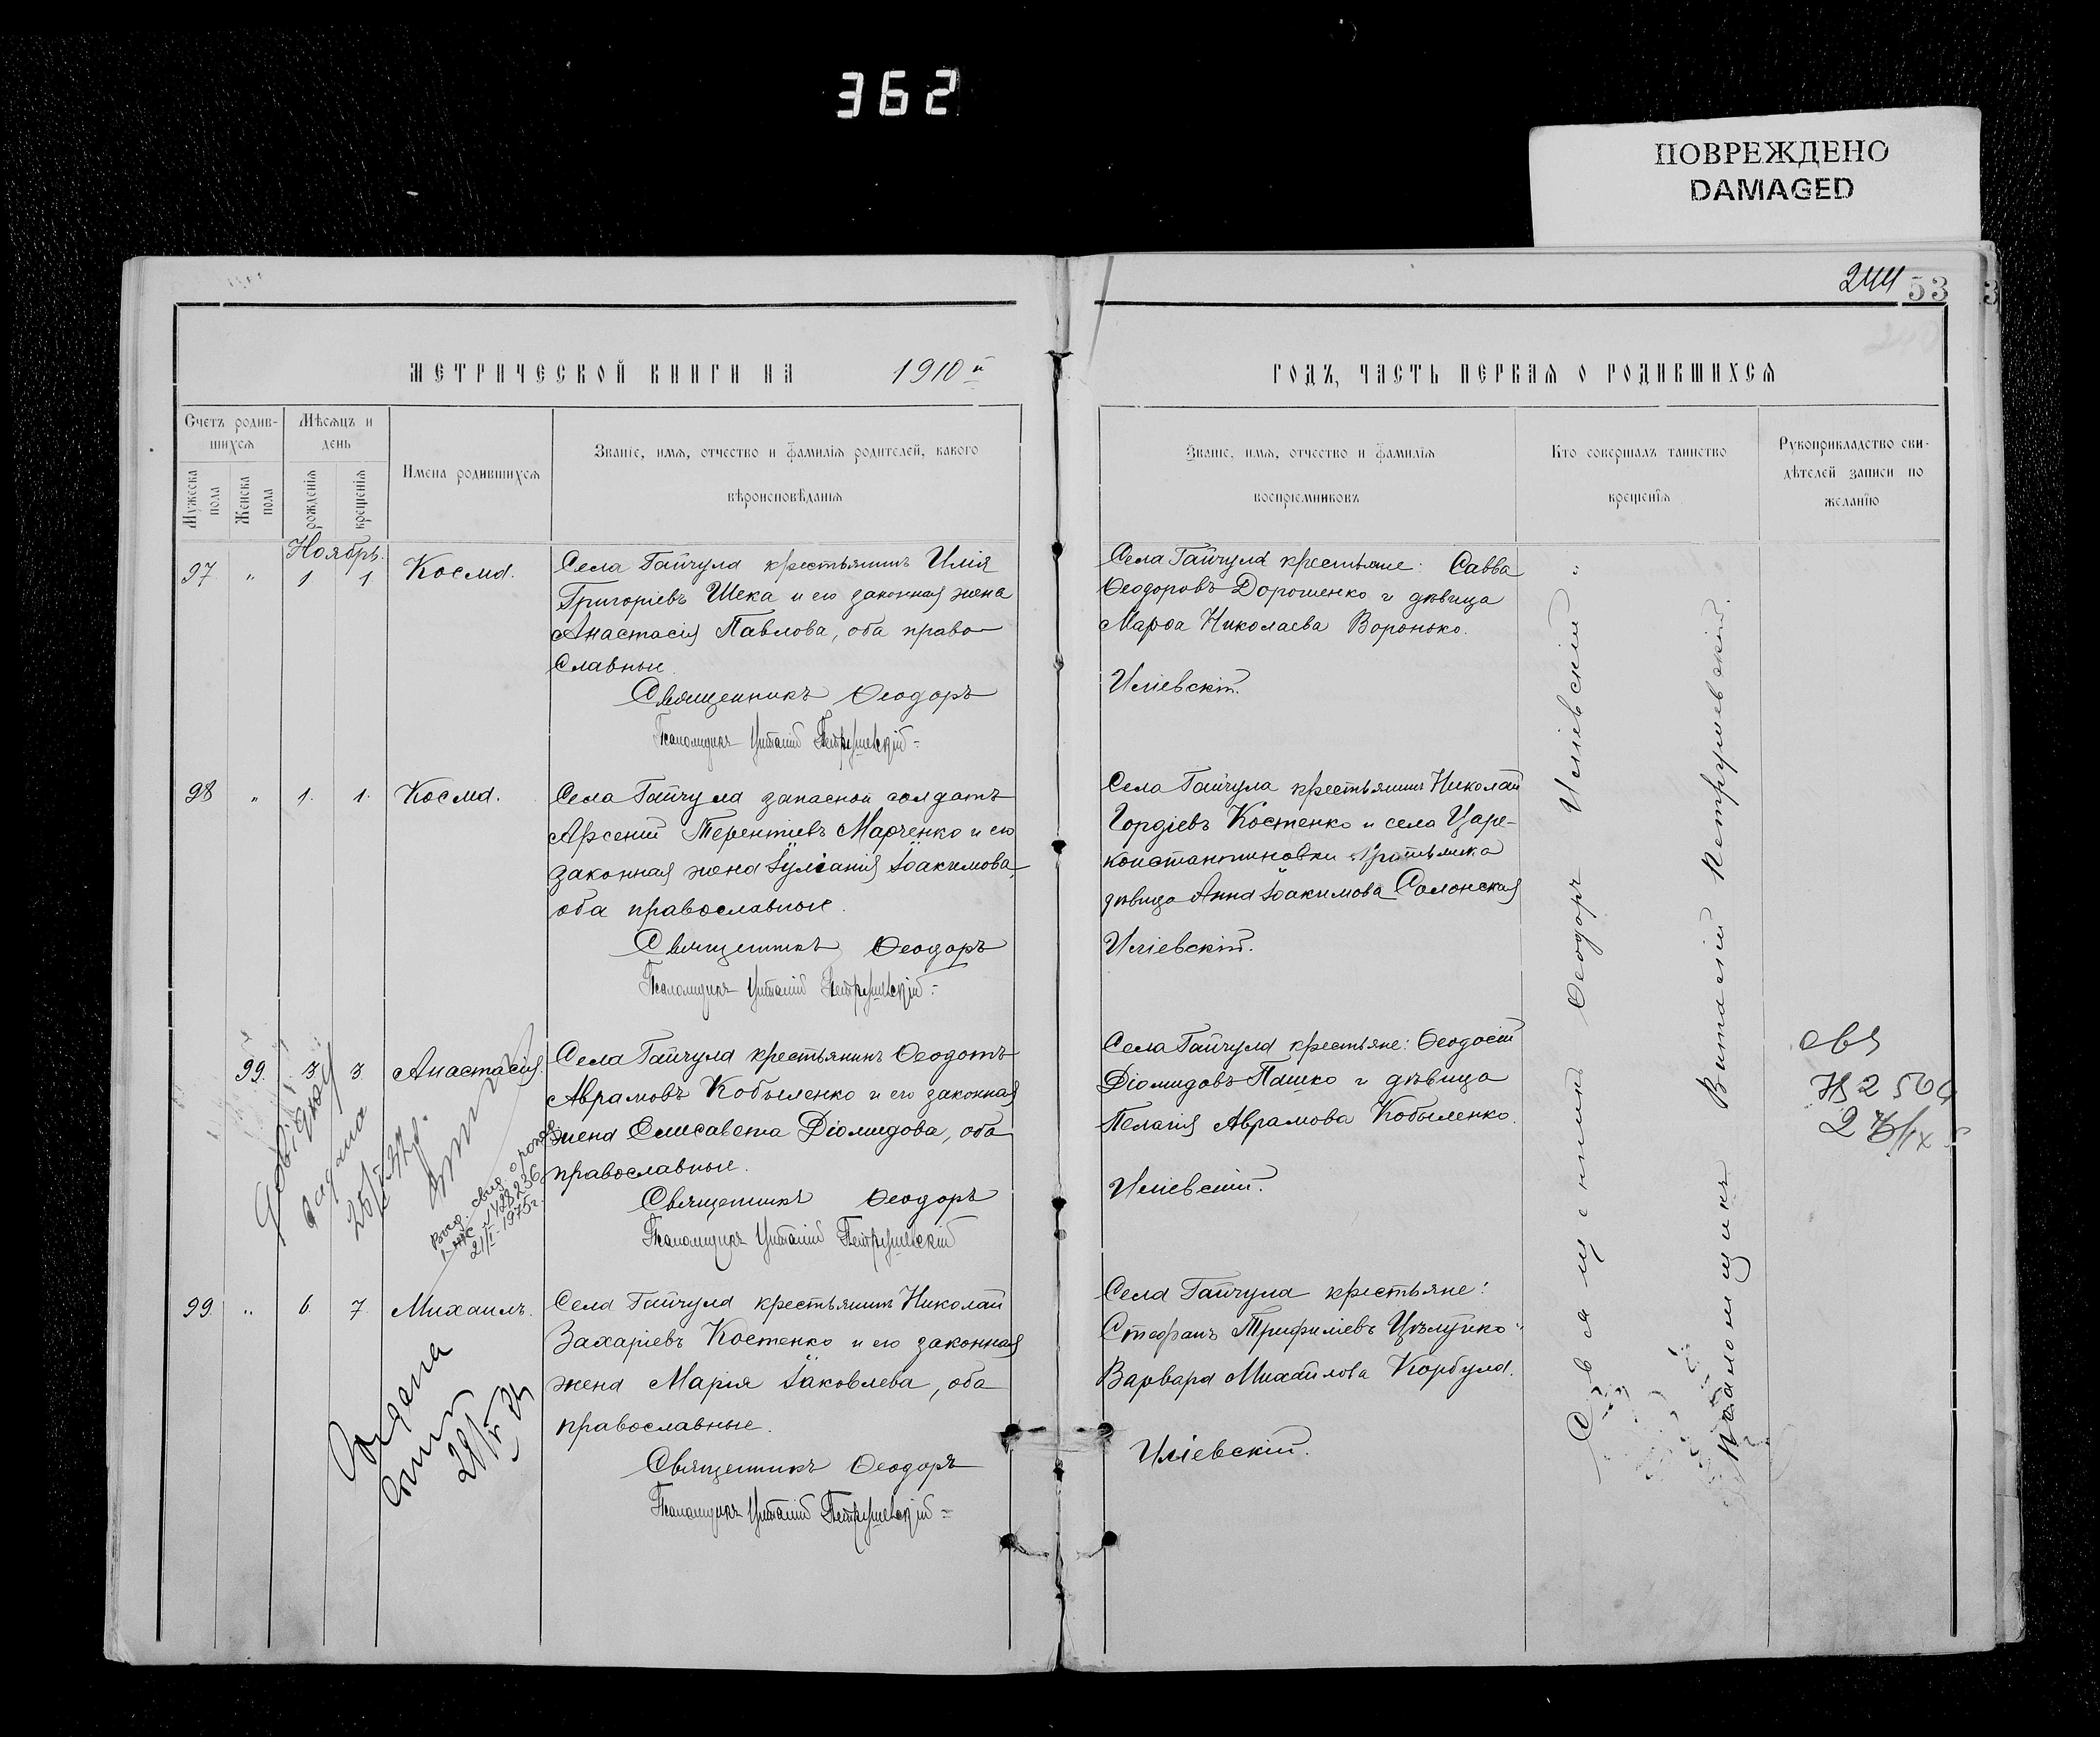 362
ПОВРЕЖДЕНО
DAMAGED
244 53
МЕТРИЧЕСКОЙ КНИГИ НА 1910й
Счетъ родив-
шихся
Мѣсяцъ и
день
Мужеска пола
Женска пола
рожденія
крещенія
Имена родившихся
Званіе, имя, отчество и фамилія родителей, какого
вѣроисповѣданія
Ноябрь.
97 " 1 1 Косма.
Села Гайчула крестьянинъ Илія
Григоріевъ Шека и его законная жена
Анастасія Павлова, оба право-
славные.
Священникъ Ѳеодоръ
Псаломщикъ Виталій Петрушевскій
98 " 1. 1. Косма.
Села Гайчула запасной солдатъ
Арсеній Терентіевъ Марченко и его
законная жена Іуліанія Іоакимова,
оба православные.
Священникъ Ѳеодоръ
Псаломщикъ Виталій Петрушевскій
99. 3 3 Анастасія.
Села Гайчула крестьянинъ Ѳеодотъ
Аврамовъ Кобыленко и его законная
жена Елисавета Діомидова, оба
православные.
Священникъ Ѳеодоръ
Псаломщикъ Виталій Петрушевскій
21/I-1975г.
99 " 6. 7. Михаилъ.
Села Гайчула крестьянинъ Николай
Захаріевъ Костенко и его законная
жена Марія Іаковлева, оба
православные.
Священникъ Ѳеодоръ
Псаломщикъ Виталій Петрушевскій
ГОДЪ, ЧАСТЬ ПЕРВАЯ О РОДИВШИХСЯ
Званіе, имя, отчество и фамилія
воспріемниковъ
Кто совершалъ таинство
крещенія
Рукоприкладство сви-
дѣтелей записи по
желанію
Села Гайчула крестьяне: Савва
Ѳеодоровъ Дорошенко и дѣвица
Марѳа Николаева Воронько.
Иліевскій.
Села Гайчула крестьянинъ Николай
Гордіевъ Костенко и села Царе-
константиновки
дѣвица Анна Іоакимова Солонская
Иліевскій.
Села Гайчула крестьяне: Ѳеодосій
Діомидовъ Пашко и дѣвица
Пелагія Аврамова Кобыленко.
Иліевскій.
Села Гайчула крестьяне:
Стефанъ Трифиліевъ Цѣлуйко и
Варвара Михайлова Корбула.
Иліевскій.
Священникъ Ѳеодоръ Иліевскій
Псаломщикъ Виталій Петрушевскій.